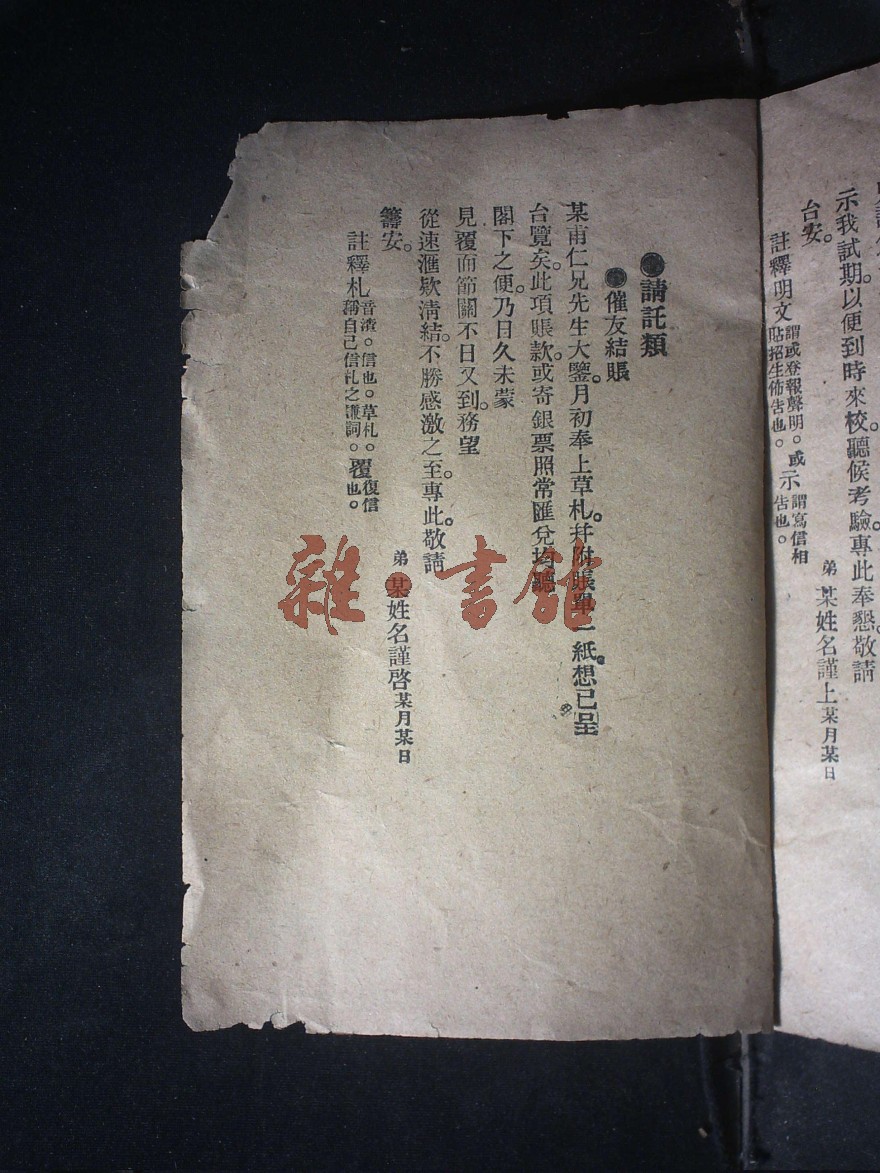 示我試期。以便到時來校。聽候考驗。專此奉懇。敬請
台安。
弟 某姓名謹上某月某日
註釋明文謂或登報聲明。或貼招生佈告也。示謂寫信相告也。
●請託類
●催友結賬
某甫仁兄先生大鑒。月初奉上草札。幷附賬單一紙。想已呈
台覽矣。此項賬款。或寄銀票照常匯兌均聽
閣下之便。乃日久未蒙
見覆而節關不日又到。務望
從速滙欵清結。不勝感激之至。專此敬請
籌安。
弟 某姓名謹啓某月某日
註釋札音渣。信也。草札。稱自己信札之謙詞。覆復信也。
雜·書館